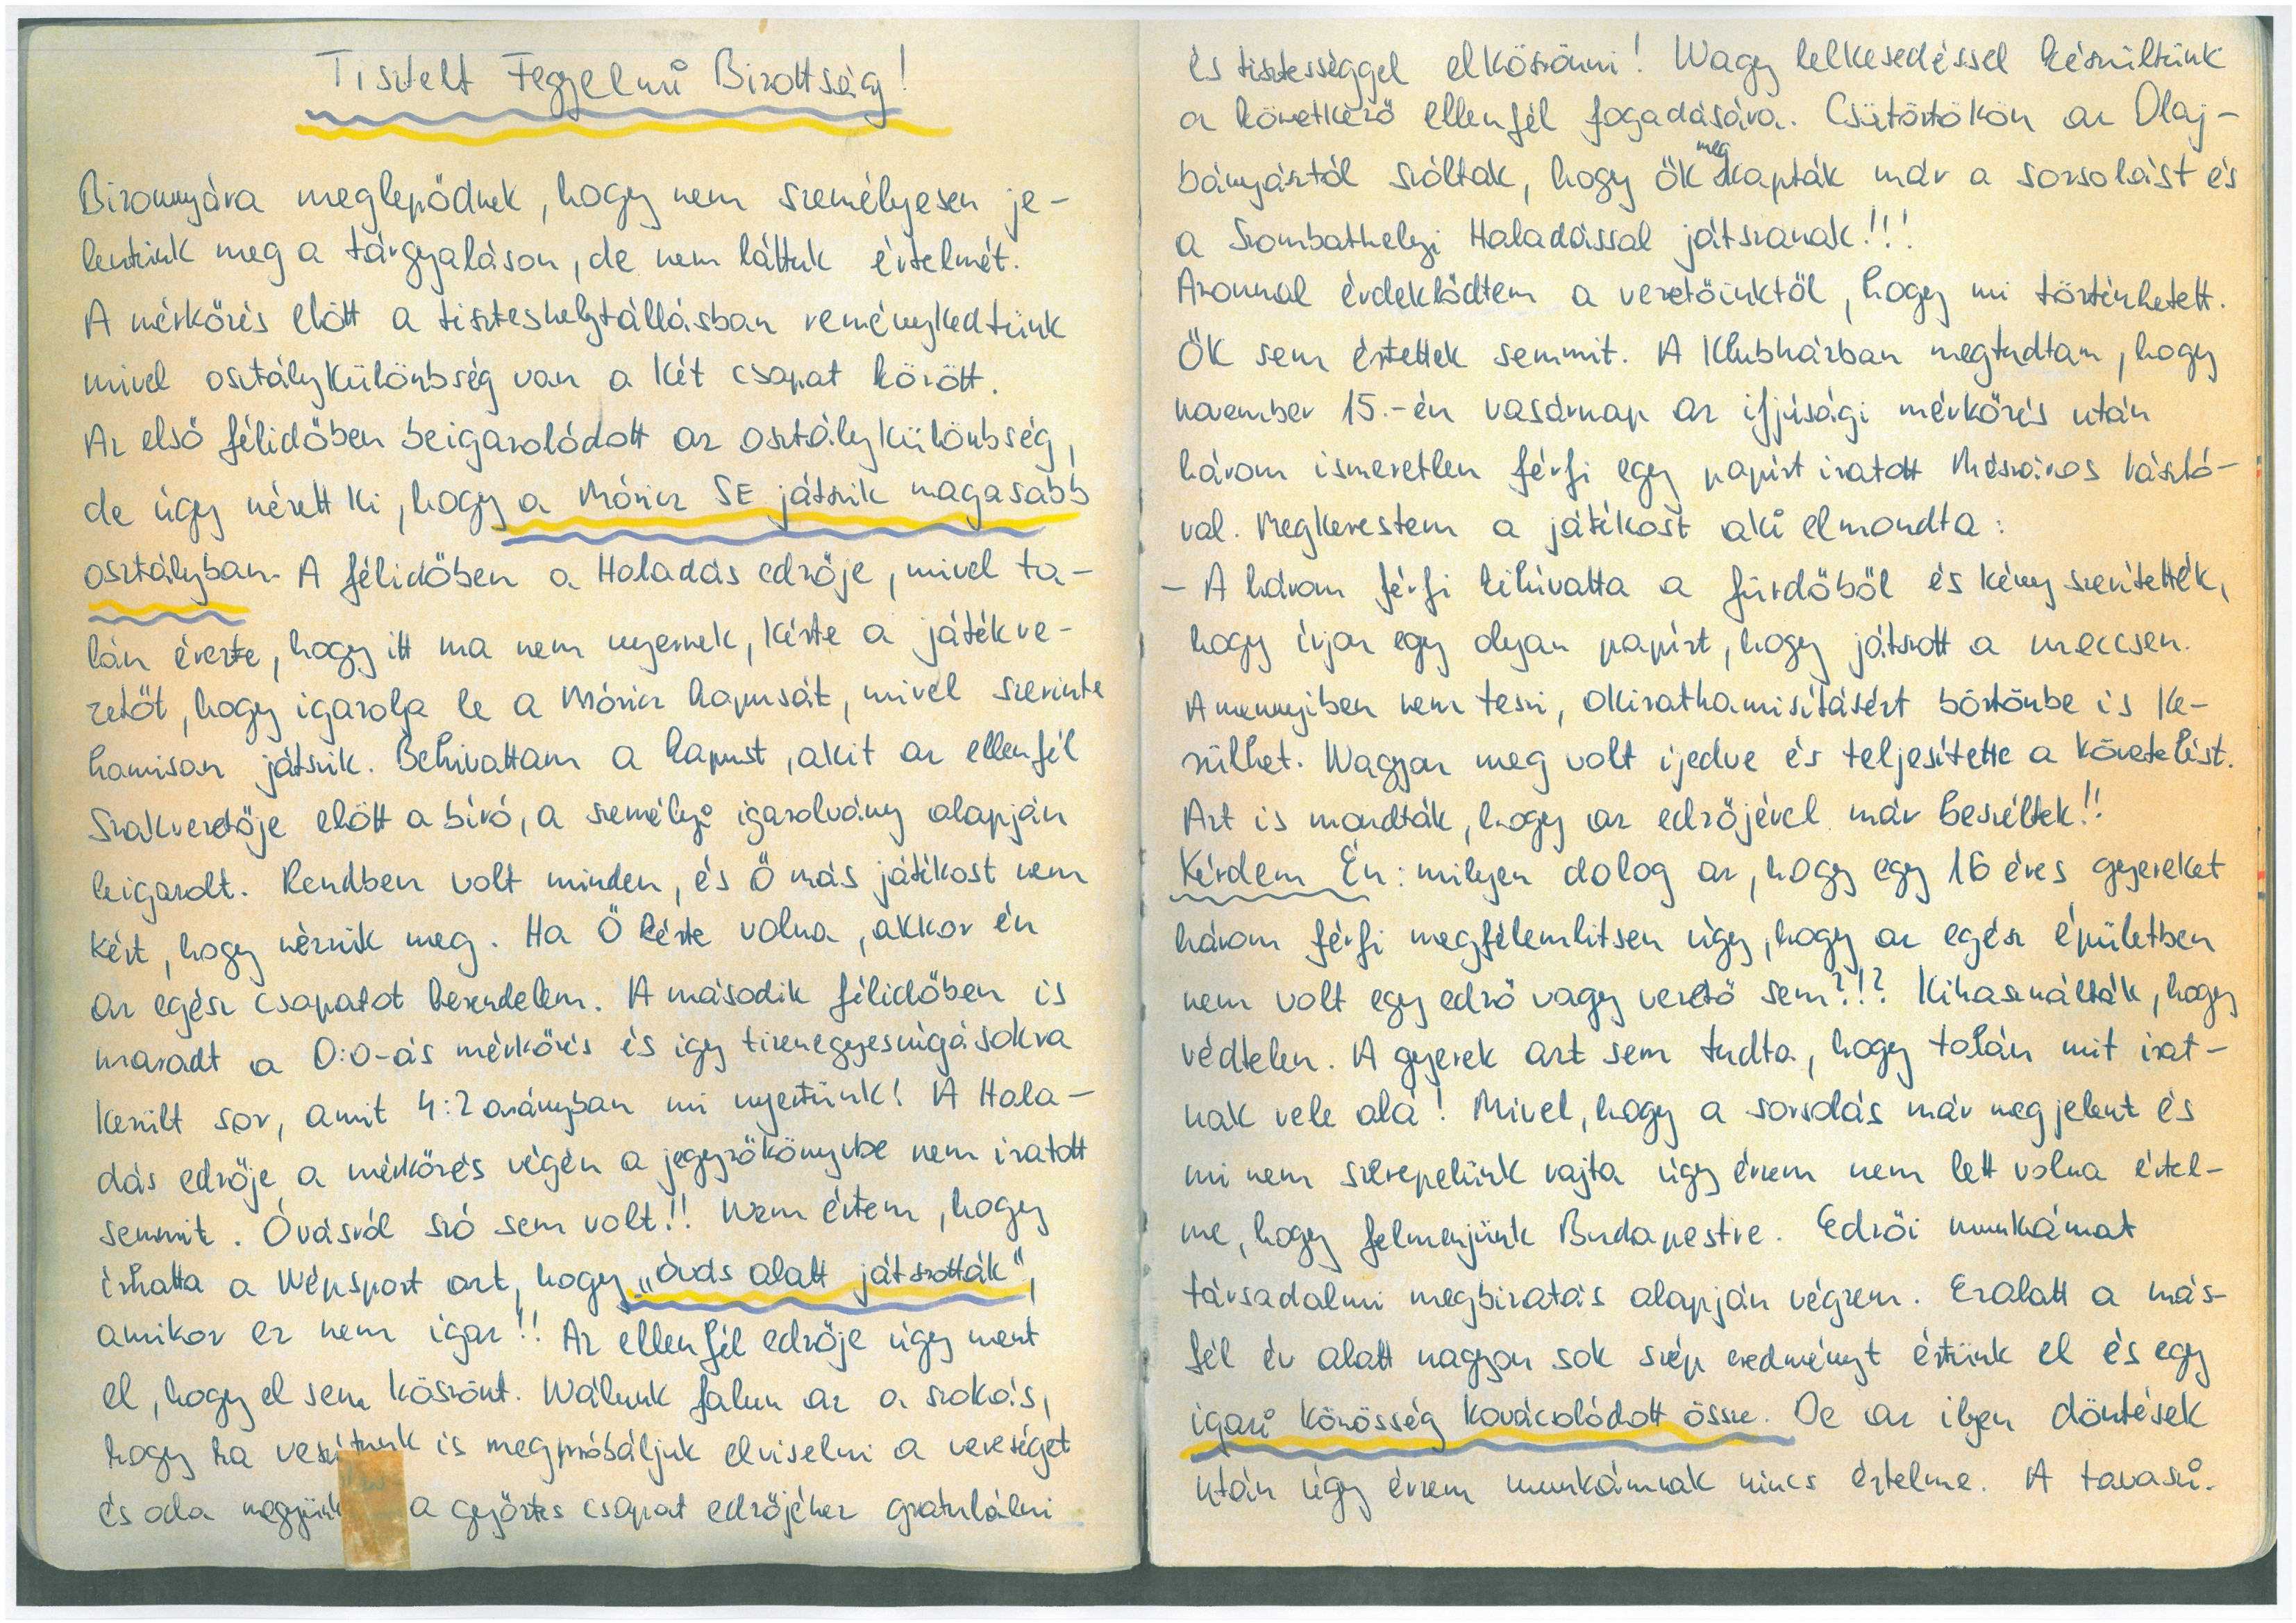 Tisztelt Fegyelmi Bizottság!
Bizonnyára meglepődnek, hogy nem személyesen je-
lentünk meg a tárgyaláson, de nem láttuk értelmét.
A mérkőzés előtt a tiszteshelytállásban reménykedtünk
mivel osztálykülönbség van a két csapat között.
Az első félidőben beigazolódott az osztálykülönbség,
de úgy nézett ki, hogy a Móricz SE játszik magasabb
osztályban. A félidőben a Haladás edzője, mivel ta-
lán érezte, hogy itt ma nem nyernek, kérte a játékve-
zetőt, hogy igazolja le a Móricz kapusát, mivel szerinte
hamisan játszik. Behivattam a kapust, akit az ellenfél
szakvezetője előtt a bíró, a személyi igazolvány alapján
leigazolt. Rendben volt minden, és Ő más játékost nem
kért, hogy nézzük meg. Ha Ő kérte volna, akkor én
az egész csapatot berendelem. A második félidőben is
maradt a 0:0-ás mérkőzés és igy tizenegyesrúgásokra
került sor, amit 4:2 arányban mi nyertünk! A Hala-
dás edzője a mérkőzés végén a jegyzőkönyvbe nem iratott
semmit. Óvásról szó sem volt!! Nem értem, hogy
írhatta a Népsport azt, hogy „óvás alatt játszották",
amikor ez nem igaz!! Az ellenfél edzője úgy ment
el, hogy el sem köszönt. Nálunk falun az a szokás,
hogy ha vesztünk is megpróbáljuk elviselni a vereséget
és oda megyünk a győztes csapat edzőjéhez gratulálni
és tisztességgel elköszönni! Nagy lelkesedéssel készültünk
a következő ellenfél fogadására. Csütörtökön az Olaj-
bányásztól szóltak, hogy ők megkapták már a sorsolást és
a Szombathelyi Haladással játszanak!!!
Azonnal érdeklődtem a vezetőinktől, hogy mi történhetett.
Ők sem értettek semmit. A Klubházban megtudtam, hogy
november 15.-én vasárnap az ifjúsági mérkőzés után
három ismeretlen férfi egy papírt iratott Mészáros László-
val. Megkerestem a játékost aki elmondta:
- A három férfi kihivatta a fürdőből és kényszerítették,
hogy írjon egy olyan papírt, hogy játszott a meccsen.
Amennyiben nem teszi, okirathamisításért börtönbe is ke-
rülhet. Nagyon meg volt ijedve és teljesítette a követelést.
Azt is mondták, hogy az edzőjével már beszéltek!!
Kérdem Én: milyen dolog az, hogy egy 16 éves gyereket
három férfi megfélemlitsen úgy, hogy az egész épületben
nem volt egy edző vagy vezető sem?!? Kihasználták, hogy
védtelen. A gyerek azt sem tudta, hogy talán mit irat-
nak vele alá! Mivel, hogy a sorsolás már megjelent és
mi nem szerepelünk rajta úgy érzem nem lett volna értel-
me, hogy felmenjünk Budapestre. Edzői munkámat
társadalmi megbizatás alapján végzem. Ezalatt a más-
fél év alatt nagyon sok szép eredményt értünk el és egy
igazi közösség kovácsolódott össze. De az ilyen döntések
után úgy érzem munkámnak nincs értelme. A tavaszi